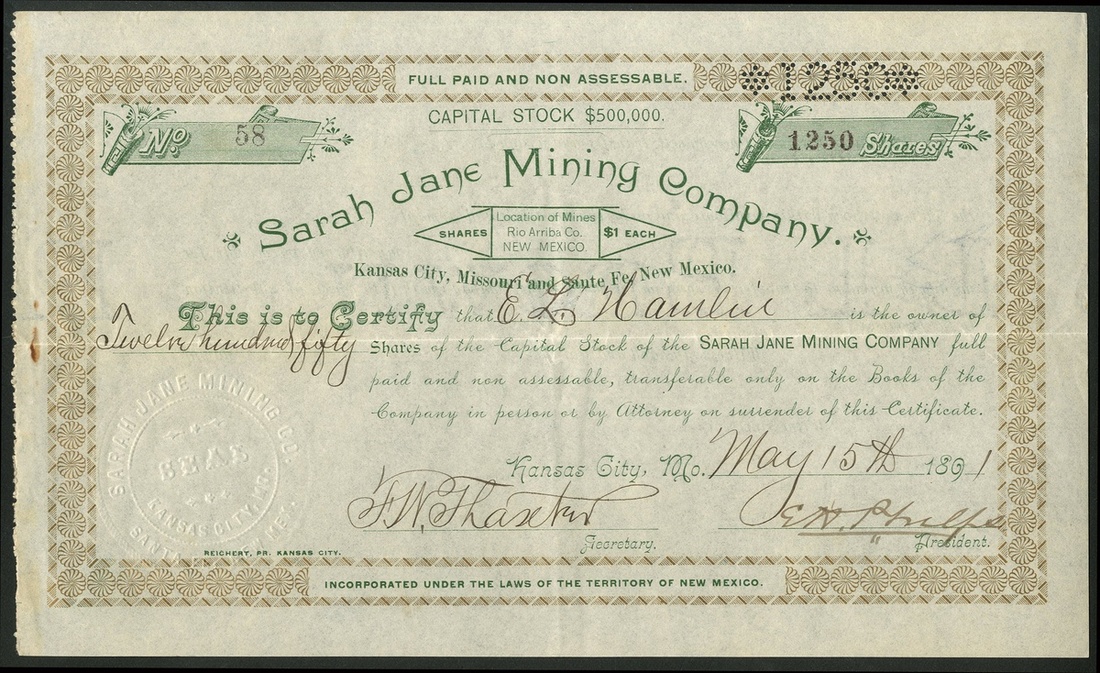 FULL PAID AND NON ASSESSABLE.
*1250*
CAPITAL STOCK $500,000.
No. 58
1250 Shares
Sarah Jane Mining Company.
SHARES
Location of Mines
Rio Arriba Co.
NEW MEXICO.
$1 EACH
Kansas City, Missouri and Santa Fe, New Mexico.
This is to Certify that E. L. Hamlin is the owner of
Twelve hundred fifty Shares of the Capital Stock of the SARAH JANE MINING COMPANY full
paid and non assessable, transferable only on the Books of the
Company in person or by Attorney on surrender of this Certificate.
Kansas City, Mo. May 15th 1891
SARAH JANE MINING CO.
SEAL
KANSAS CITY, MO.
SANTA
F.W.
E.H. Phelps
Secretary.
President.
REICHERT, PR. KANSAS CITY.
INCORPORATED UNDER THE LAWS OF THE TERRITORY OF NEW MEXICO.